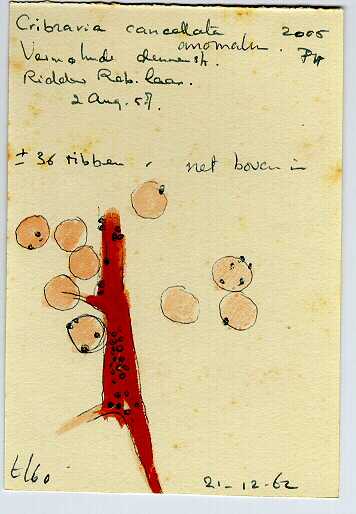 Cribraria cancellata 2005
anomala.
Vermolmde dennenst.
Ridder Rab. laar.
2 Aug. 57.
± 36 ribben, net boven in
t/60 21-12-62